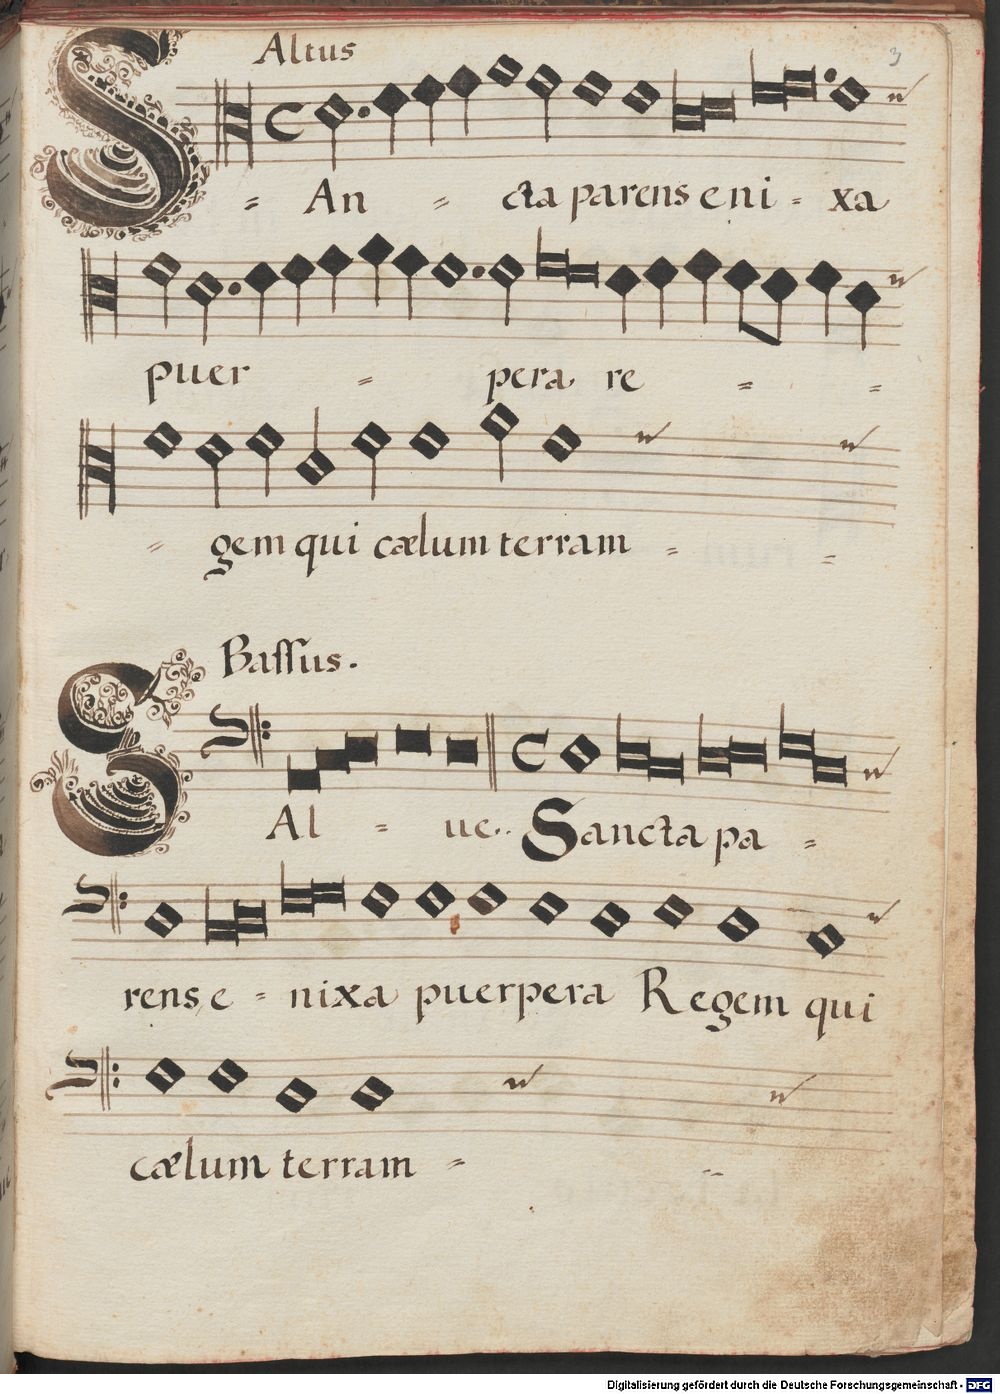 Altus
3
S = An = cta parens eni = xa
puer = pera re = =
= gem qui cælum terram = =
Bassus.
SAl = ue.. Sancta pa =
rens, e = nixa puerpera Regem qui
cælum terram = =
Digitalisierung gefördert durch die Deutsche Forschungsgemeinschaft - DFG